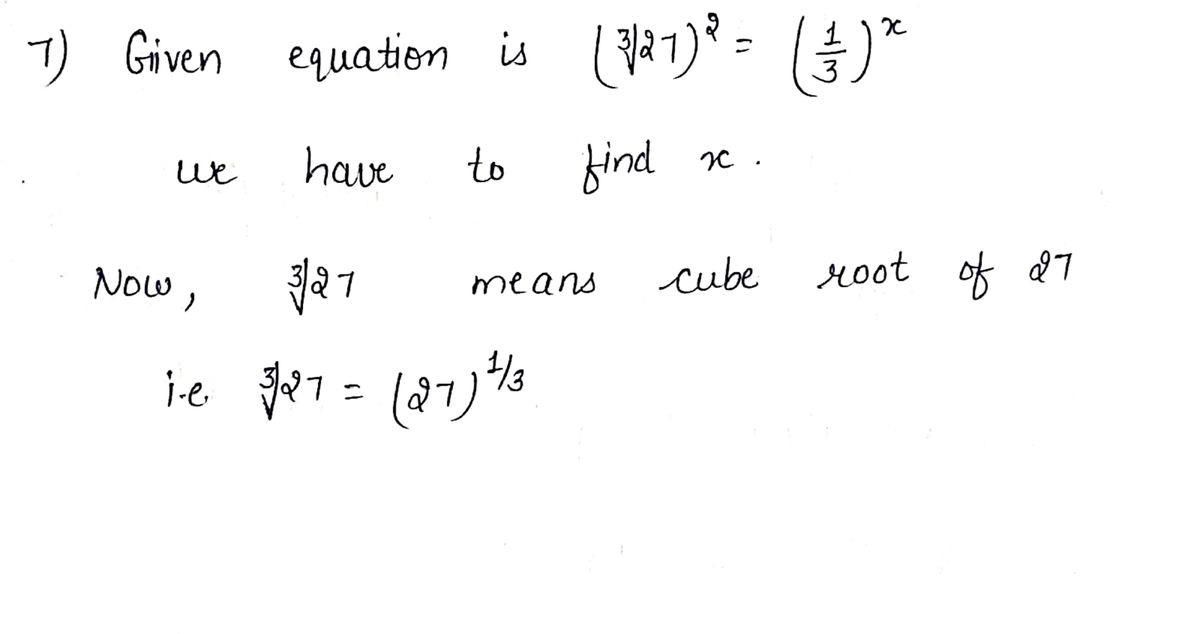 7) Given equation is (∛27)² = (1/3)ˣ
we have to find x .
Now, ∛27 means cube root of 27
i.e. ∛27 = (27)^1/3